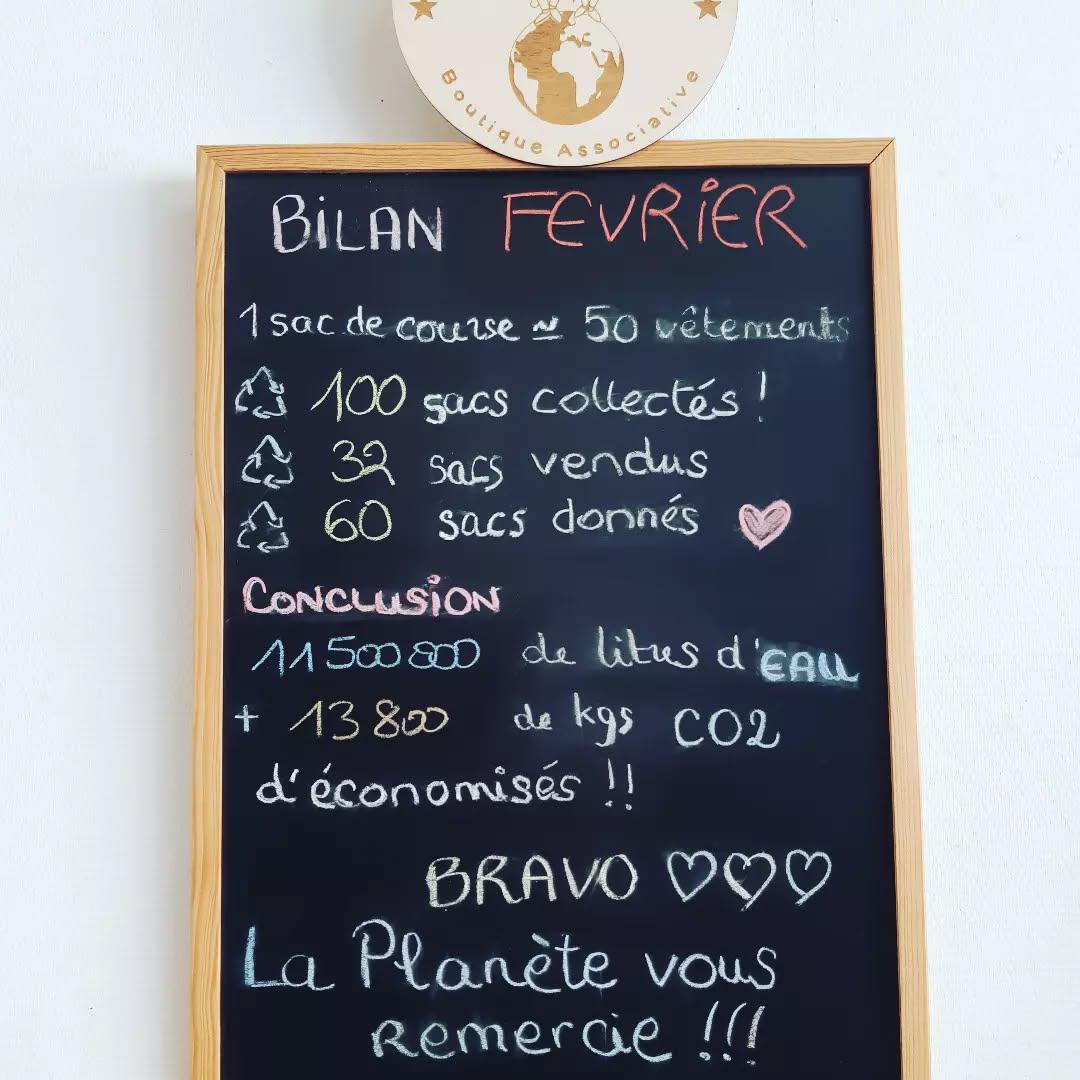 Boutique Associative
BiLAN FEVRiER
1 sac de course ≃ 50 vêtements
100 sacs collectés !
32 sacs vendus
60 sacs donnés
CONCLUSiON
11 500 800 de litres d'EAU
+ 13 800 de kgs CO2
d'économisés !!
BRAVO ♡♡♡
La Planète vous
Remercie !!!